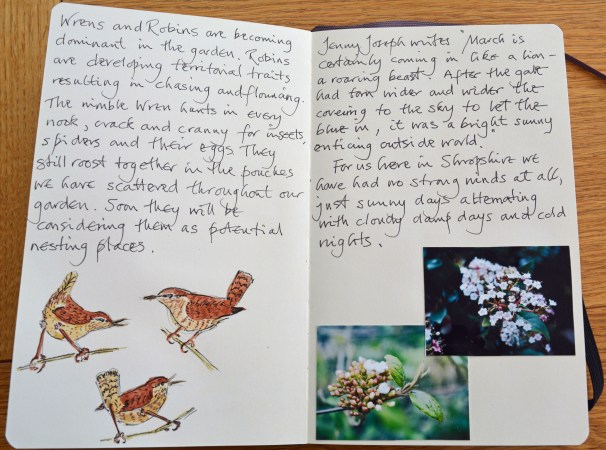 Wrens and Robins are becoming
dominant in the garden. Robins
are developing territorial traits
resulting in chasing and flouncing.
The nimble Wren hunts in every
nook, crack and cranny for insects,
spiders and their eggs. They
still roost together in the pouches
we have scattered throughout our
garden. Soon they will be
considering them as potential
nesting places.
Jenny Joseph writes "March is
certainly coming in like a lion –
a roaring beast. After the gale
had torn wider and wider the
covering to the sky to let the
blue in, it was a bright sunny
enticing outside world."
For us here in Shropshire we
have had no strong winds at all,
just sunny days alternating
with cloudy damp days and cold
nights.